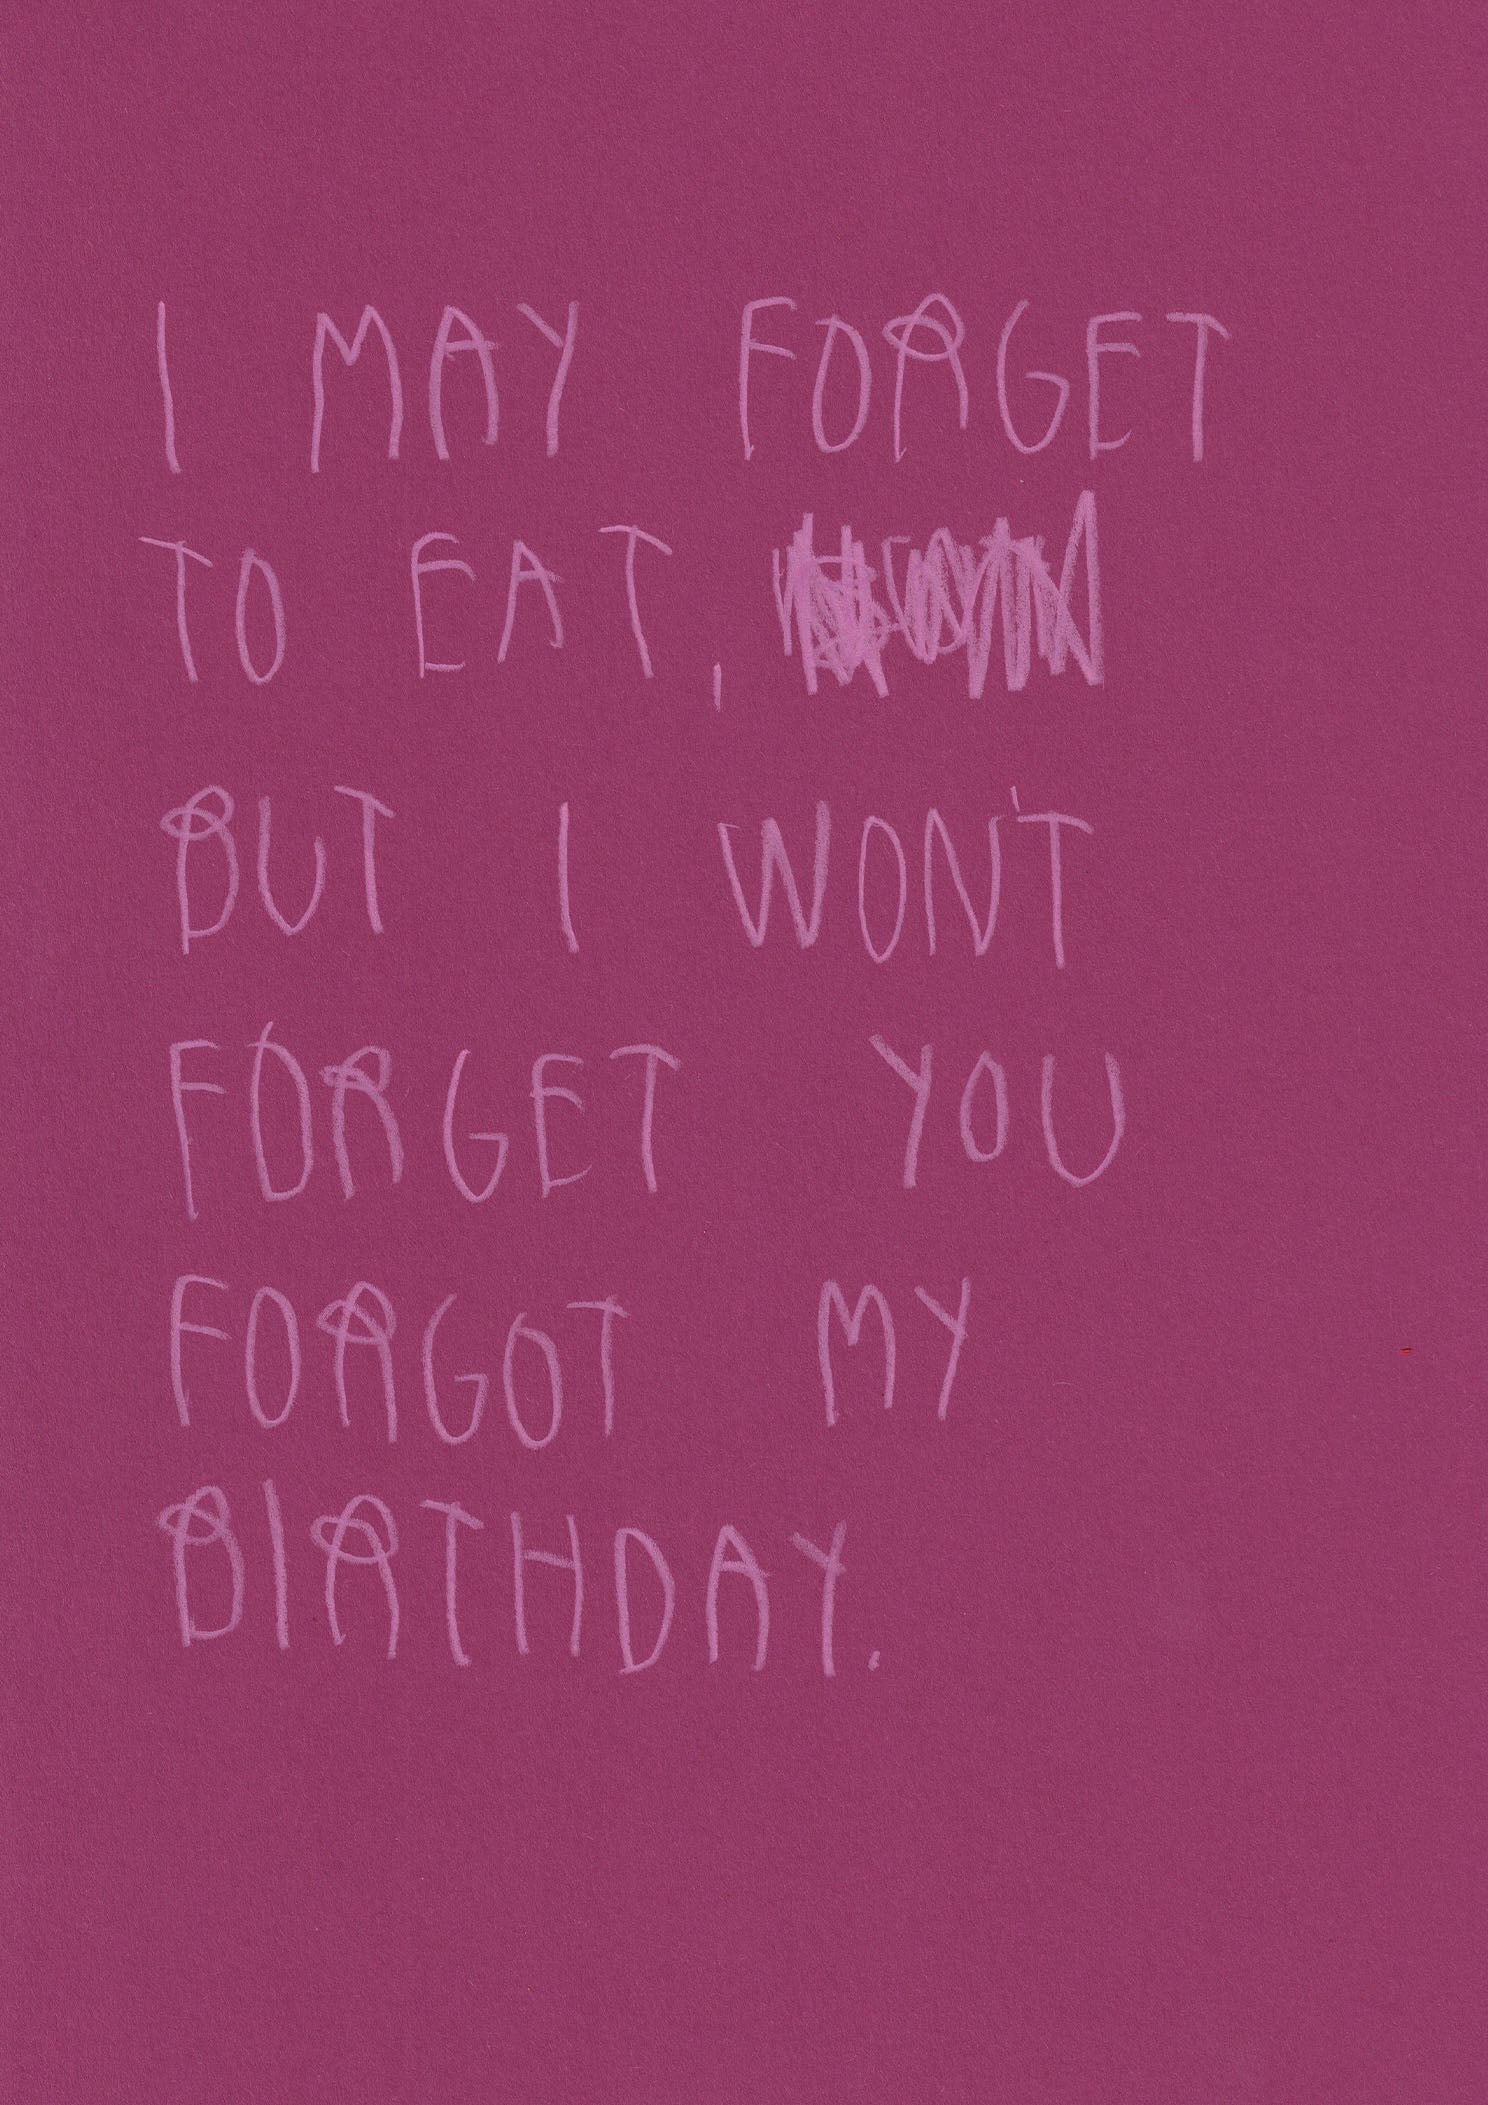 I MAY FORGET
TO EAT,
BUT I WON'T
FORGET YOU
FORGOT MY
BIRTHDAY.